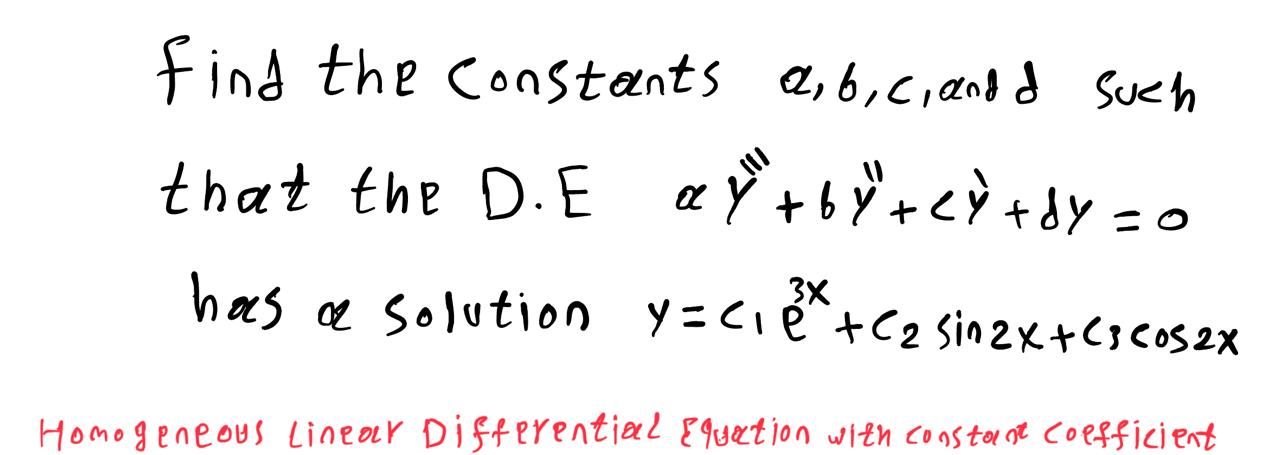 find the constants a, b, c, and d such
that the D.E ay''' + by'' + cy' + dy = 0
has a solution y = c₁e³ˣ + c₂ sin2x + c₃cos2x
Homogeneous Linear Differential Equation with constant coefficient